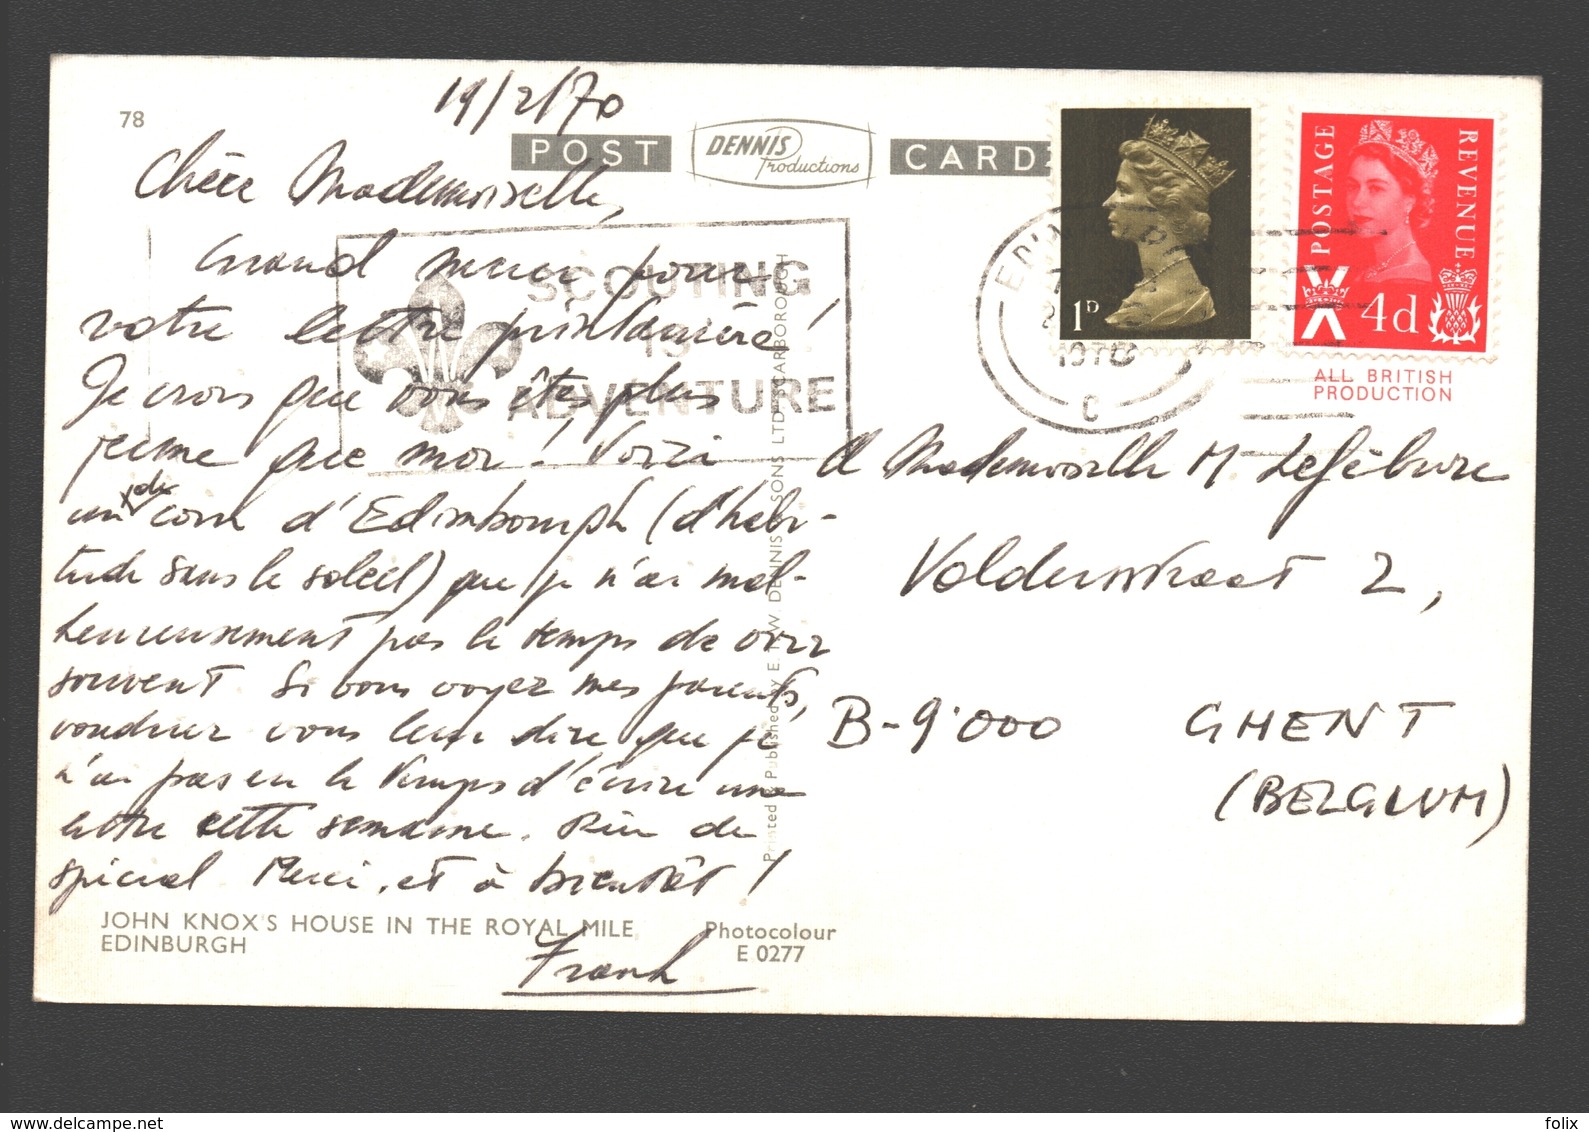 78
19/2/70
POST DENNIS Productions CARD
Chère Mademoiselle,
Grand merci pour
votre lettre printanière!
Je crois que vous êtes plus
jeune que moi! Voici
un coin d'Edimbourgh (d'habi-
tude sans le soleil) que je n'ai mal-
heureusement pas le temps de voir
souvent. Si vous voyez mes parents,
voudriez vous leur dire que je
n'ai pas eu le temps d'écrire une
lettre cette semaine. Rien de
spécial. Merci, et à bientôt!
Frank
JOHN KNOX'S HOUSE IN THE ROYAL MILE
EDINBURGH
Photocolour
E 0277
Printed & Published by E. T. W. DENNIS & SONS LTD. SCARBOROUGH
SCOUTING
IS
ADVENTURE
1970
C
1D
POSTAGE
REVENUE
4d
ALL BRITISH
PRODUCTION
Mademoiselle M. Lefèbvre
Volderstraat 2,
B-9000 GHENT
(BELGIUM)
folix